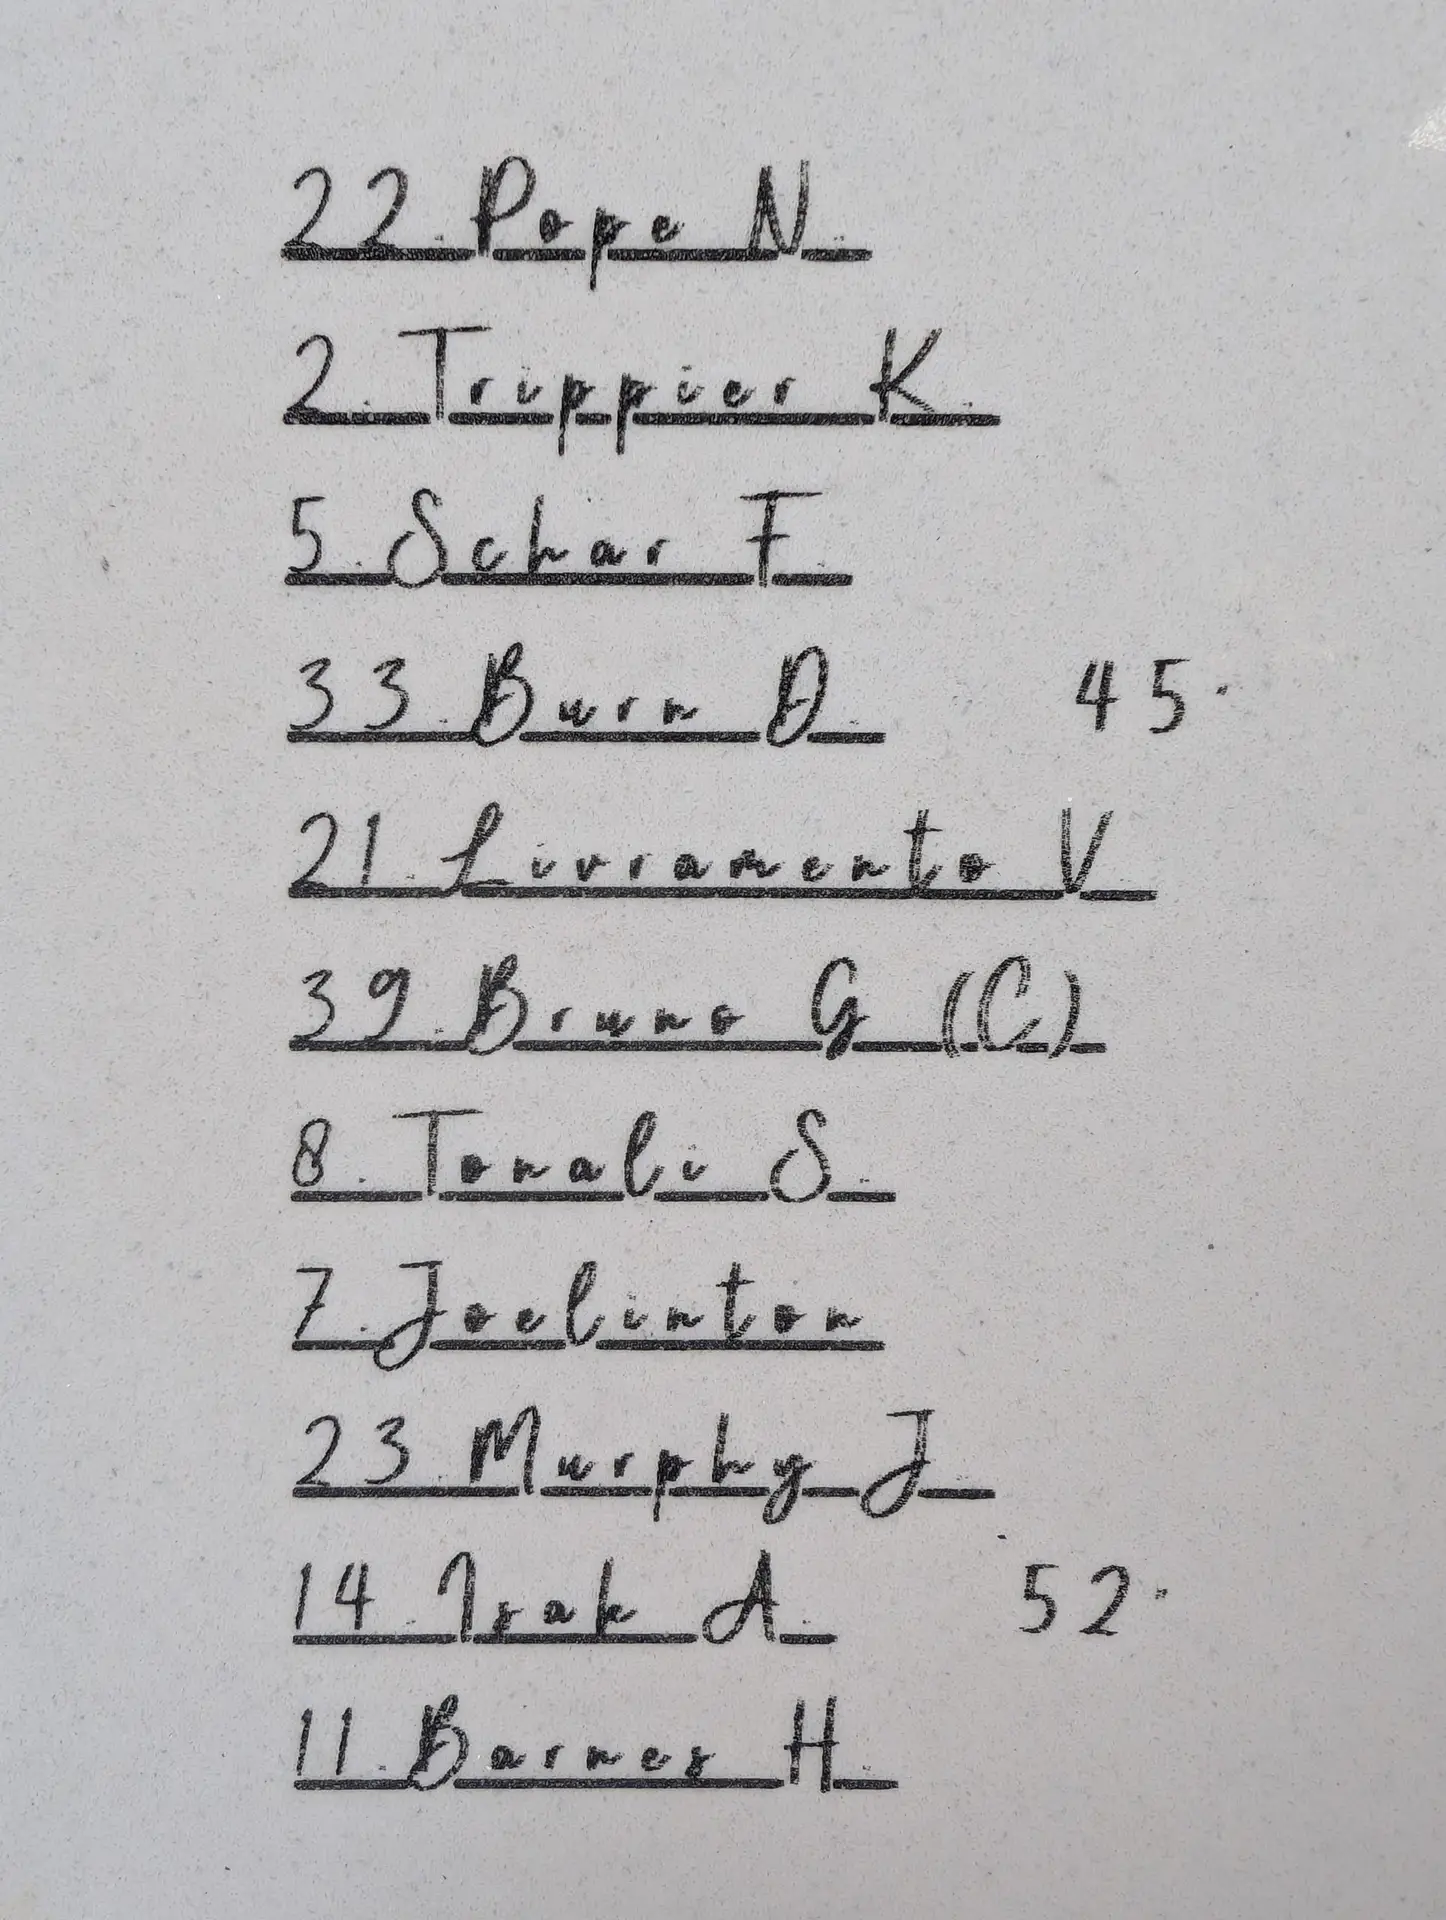 22. Pope N.
2. Trippier K.
5. Schar F.
33. Burn D. 45'
21. Livramento V.
39. Bruno G. (C).
8. Tonali S.
7. Joelinton
23. Murphy J.
14. Isak A. 52'
11. Barnes H.